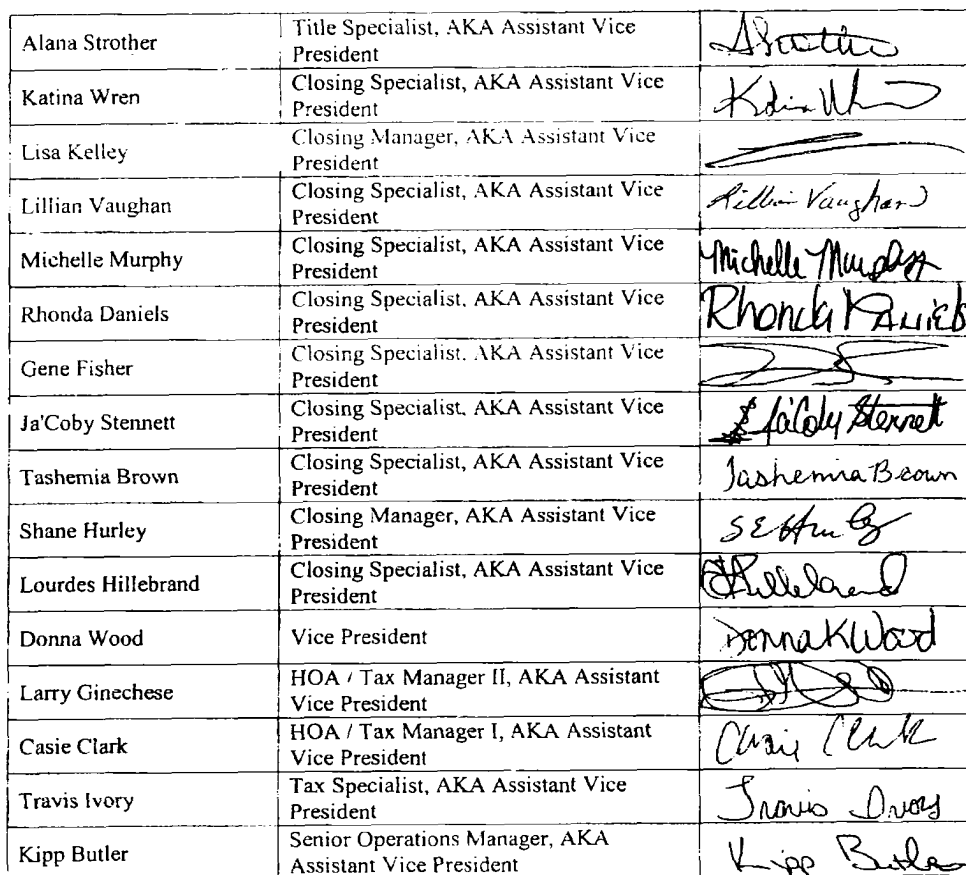 Alana Strother
Title Specialist, AKA Assistant Vice
President
Katina Wren
Closing Specialist, AKA Assistant Vice
President
Lisa Kelley
Closing Manager, AKA Assistant Vice
President
Lillian Vaughan
Closing Specialist, AKA Assistant Vice
President
Lillian Vaughan
Michelle Murphy
Closing Specialist, AKA Assistant Vice
President
Michelle Murphy
Rhonda Daniels
Closing Specialist, AKA Assistant Vice
President
Rhonda Daniels
Gene Fisher
Closing Specialist, AKA Assistant Vice
President
Ja'Coby Stennett
Closing Specialist, AKA Assistant Vice
President
Ja'Coby Stennett
Tashemia Brown
Closing Specialist, AKA Assistant Vice
President
Tashemia Brown
Shane Hurley
Closing Manager, AKA Assistant Vice
President
Lourdes Hillebrand
Closing Specialist, AKA Assistant Vice
President
Hillebrand
Donna Wood
Vice President
Donna K Wood
Larry Ginechese
HOA / Tax Manager II, AKA Assistant
Vice President
Casie Clark
HOA / Tax Manager I, AKA Assistant
Vice President
Casie Clark
Travis Ivory
Tax Specialist, AKA Assistant Vice
President
Travis Ivory
Kipp Butler
Senior Operations Manager, AKA
Assistant Vice President
Kipp Butler